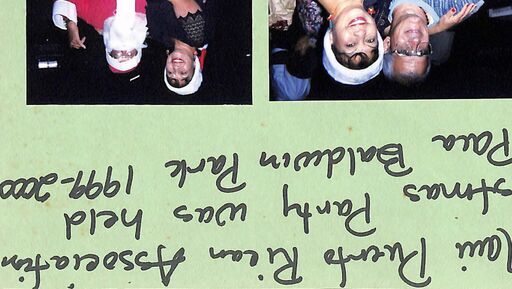 Maui Puerto Rican Association
stmas Party was held
Paia Baldwin Park 1999-2000